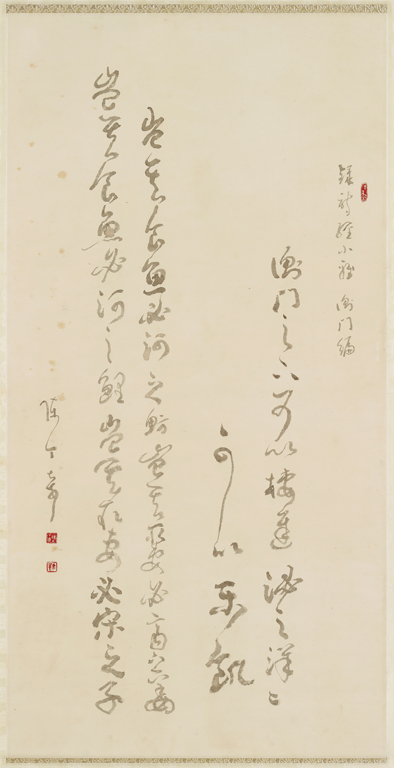 錄詩經小雅 衡門編
衡門之下可以棲遲泌之洋〻
可以樂飢
豈其食魚必河之魴豈其取妻必齊之姜
豈其食魚必河之鯉豈其取妻必宋之子
陳丁奇